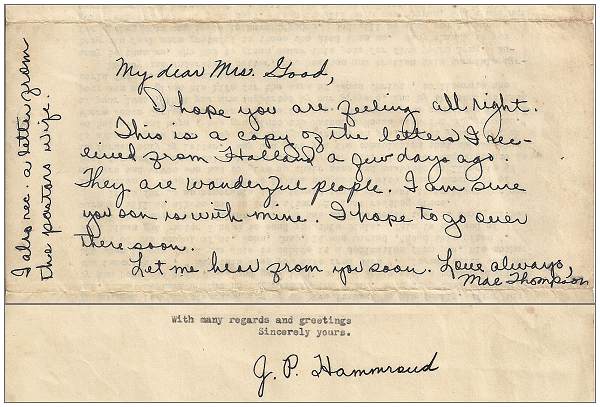 My dear Mrs. Good,
I hope you are feeling all right.
This is a copy of the letters I rec-
eived from Holland a few days ago.
They are wonderful people. I am sure
you son is with mine. I hope to go over
there soon.
Let me hear from you soon. Love always,
Mae Thompson
I also rec. a letter from
the pastors wife.
With many regards and greetings
Sincerely yours.
J. P. Hammroud